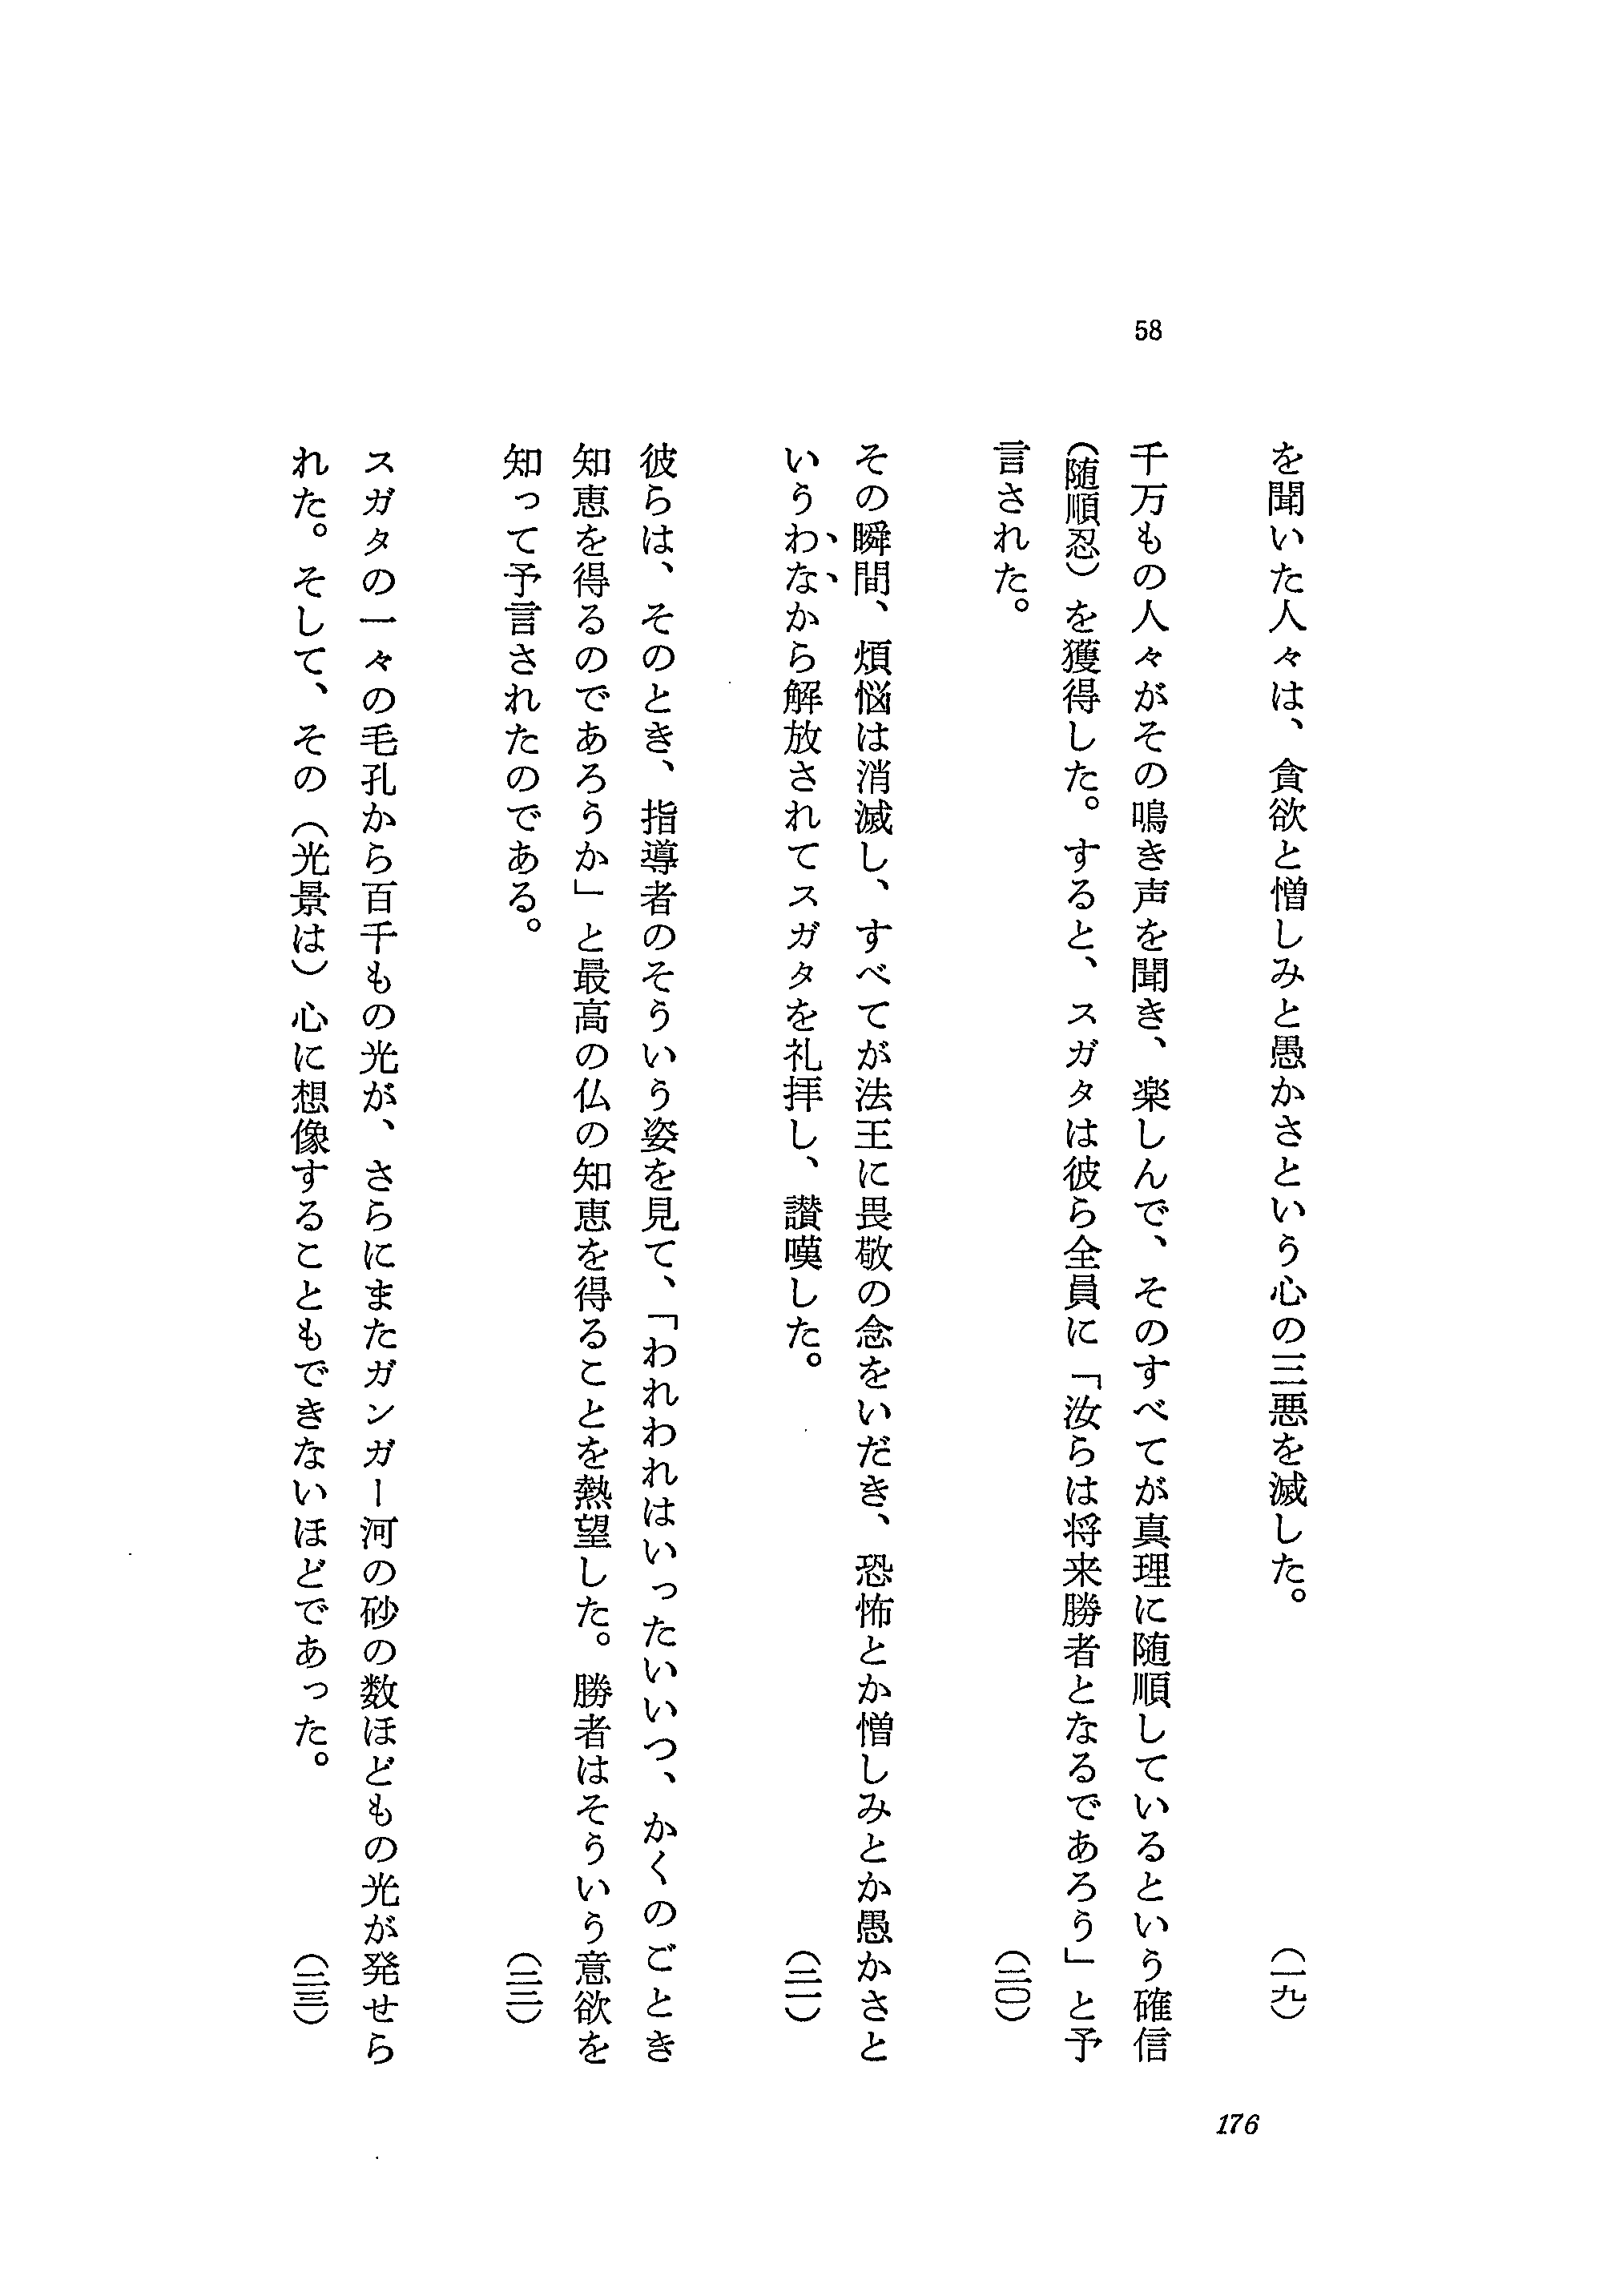 58
を聞いた人々は、貪欲と憎しみと愚かさという心の三悪を滅した。 (一九)
千万もの人々がその鳴き声を聞き、楽しんで、そのすべてが真理に随順しているという確信
(随順忍)を獲得した。すると、スガタは彼ら全員に「汝らは将来勝者となるであろう」と予
言された。 (二〇)
その瞬間、煩悩は消滅し、すべてが法王に畏敬の念をいだき、恐怖とか憎しみとか愚かさと
いうわなから解放されてスガタを礼拝し、讃嘆した。 (二一)
彼らは、そのとき、指導者のそういう姿を見て、「われわれはいったいいつ、かくのごとき
知恵を得るのであろうか」と最高の仏の知恵を得ることを熱望した。勝者はそういう意欲を
知って予言されたのである。 (二二)
スガタの一々の毛孔から百千もの光が、さらにまたガンガー河の砂の数ほどもの光が発せら
れた。そして、その(光景は)心に想像することもできないほどであった。 (二三)
176